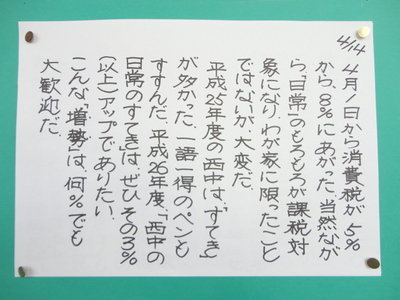 4/14
4月1日から消費税が5%
から、8%にあがった。当然なが
ら「日常」のもろもろが課税対
象になり、わが家に限ったこと
ではないが、大変だ。
平成25年度の西中は、「すてき」
が多かった。一語一得のペンも
すすんだ。平成26年度、「西中の
日常のすてき」は、ぜひ、その3%
(以上)アップでありたい。
こんな「増勢」は、何%でも
大歓迎だ。